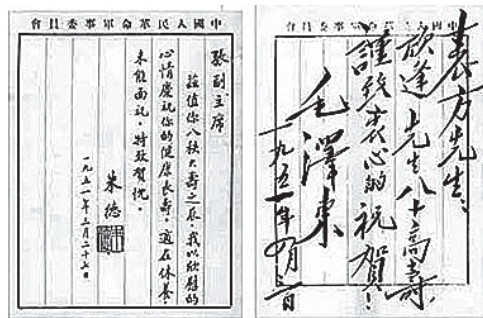 中國人民革命軍事委員會
張副主席
茲值你八秩大壽之辰,我以欣慰的
心情慶祝你的健康長壽。適在休養,
未能面祝,特致賀忱。
朱德
一九五一年三月二十七日
表方先生:
欣逢先生八十高壽,
謹致衷心的祝賀!
毛澤東
一九五一年四月